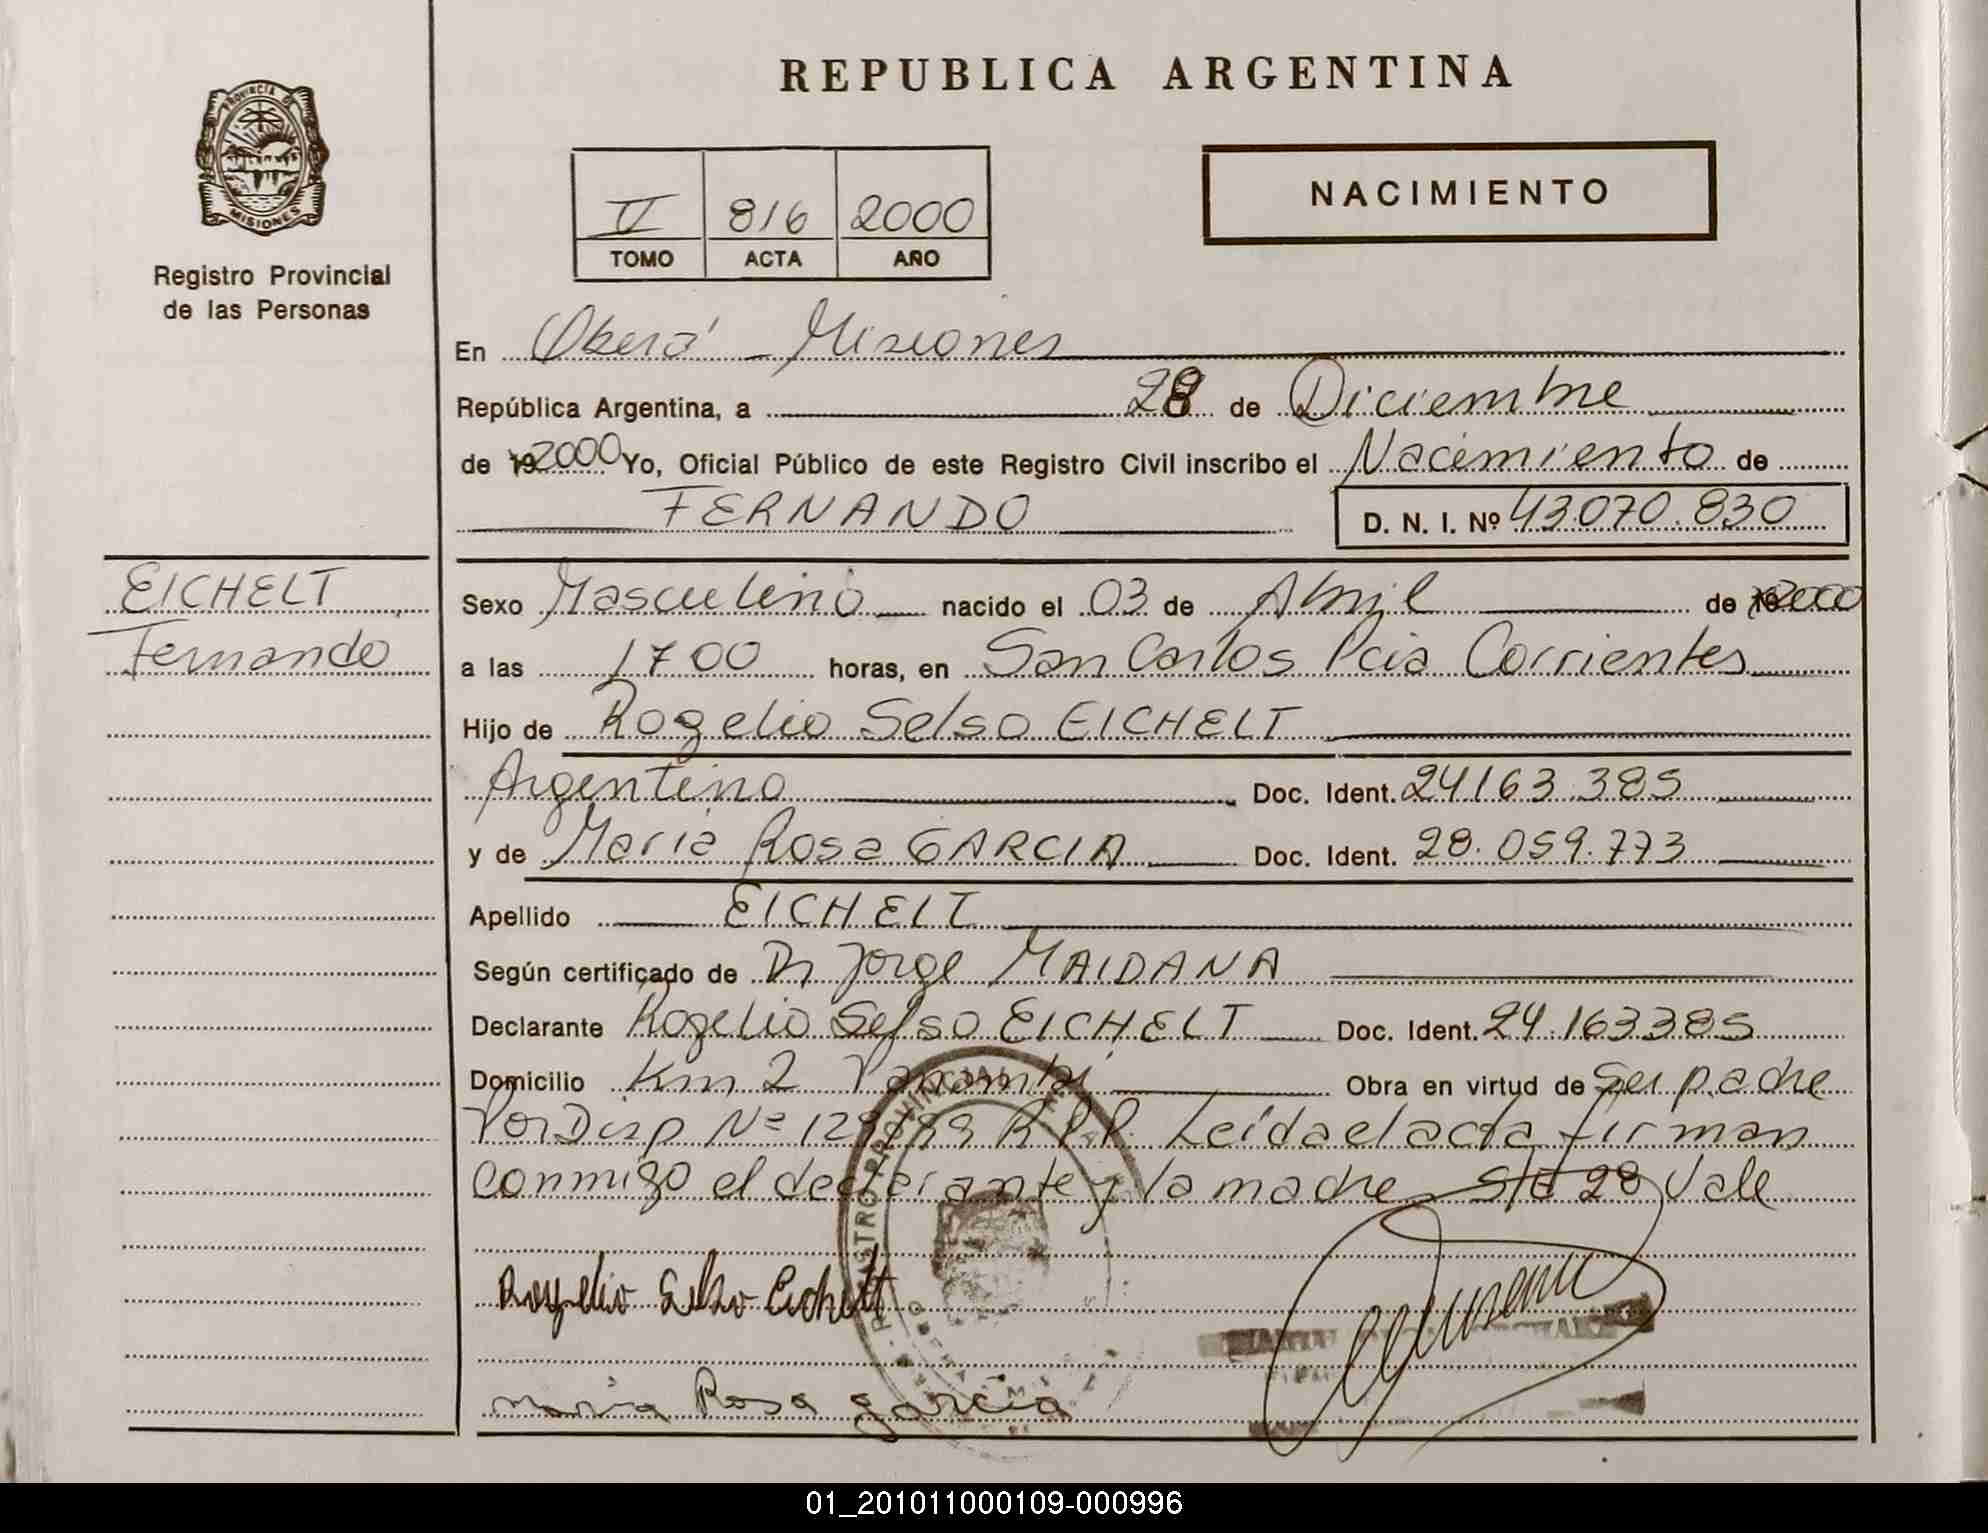 REPUBLICA ARGENTINA
PROVINCIA DE
MISIONES
Registro Provincial
de las Personas
II 816 2000
TOMO ACTA AÑO
NACIMIENTO
En Oberá - Misiones
República Argentina, a 28 de Diciembre
de 192000 Yo, Oficial Público de este Registro Civil inscribo el Nacimiento de
FERNANDO D. N. I. Nº 43.070.830
EICHELT
Fernando
Sexo Masculino nacido el 03 de Abril de 192000
a las 1700 horas, en San Carlos Pcia Corrientes
Hijo de Rogelio Selso EICHELT
Argentino Doc. Ident. 24.163.385
y de María Rosa GARCIA Doc. Ident. 28.059.773
Apellido EICHELT
Según certificado de Dr Jorge MAIDANA
Declarante Rogelio Selso EICHELT Doc. Ident. 24.163385
Domicilio Km 2 Panambi Obra en virtud de Ser padre
Por Disp Nº 129/89 R.P.P. Leída el acta firman
conmigo el declarante y la madre s/r 28 Vale
Rogelio Selso Eichelt
maria Rosa garcia
01_201011000109-000996